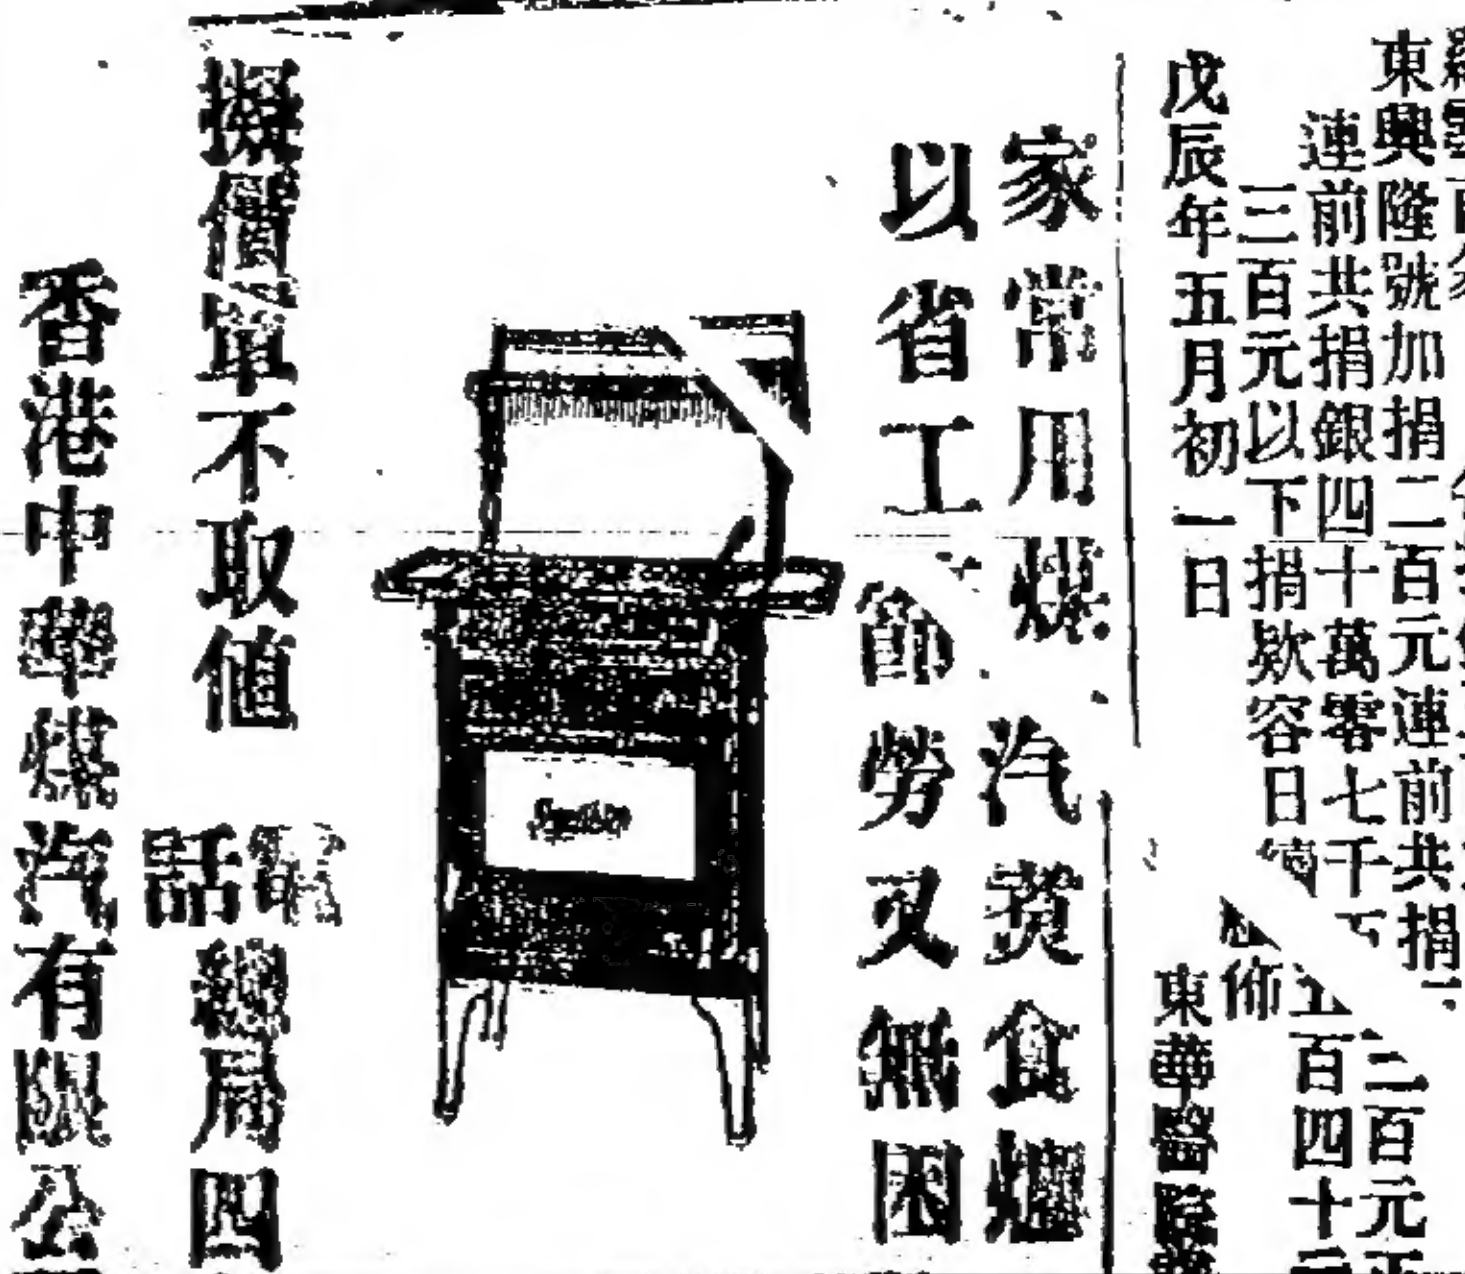 東興隆號加捐二百元連前共捐
二百元正
連前共捐銀四十萬零七千
百四十
三百元以下捐欵容日續
仰
戊辰年五月初一日
東華醫院
家常用煤汽煑食爐
以省工節勞又無困
擬價單不取値 電話總局四
香港中華煤汽有限公